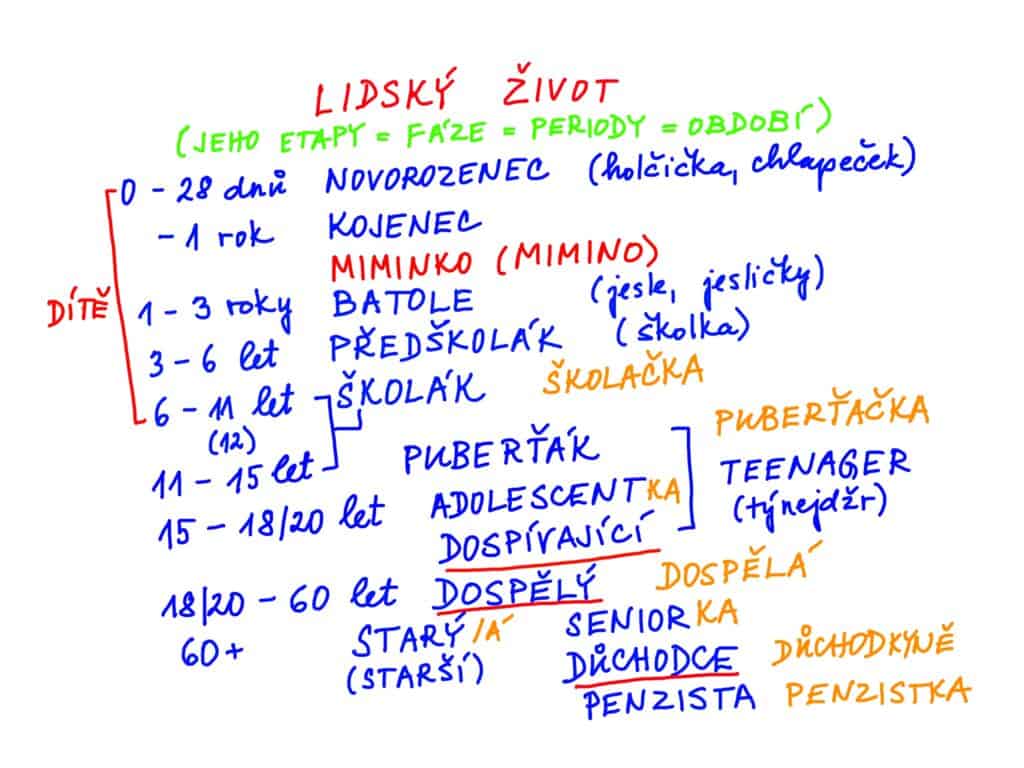 LIDSKÝ ŽIVOT
(JEHO ETAPY = FÁZE = PERIODY = OBDOBÍ)
0 - 28 dnů NOVOROZENEC (holčička, chlapeček)
- 1 rok KOJENEC
MIMINKO (MIMINO)
DÍTĚ 1 - 3 roky BATOLE (jesle, jesličky)
3 - 6 let PŘEDŠKOLÁK (školka)
6 - 11 let ŠKOLÁK ŠKOLAČKA
(12)
11 - 15 let PUBERŤÁK PUBERŤAČKA
TEENAGER
15 - 18/20 let ADOLESCENTKA (týnejdžr)
DOSPÍVAJÍCÍ
18/20 - 60 let DOSPĚLÝ DOSPĚLÁ
60+ STARÝ/Á SENIORKA
(STARŠÍ) DŮCHODCE DŮCHODKYNĚ
PENZISTA PENZISTKA